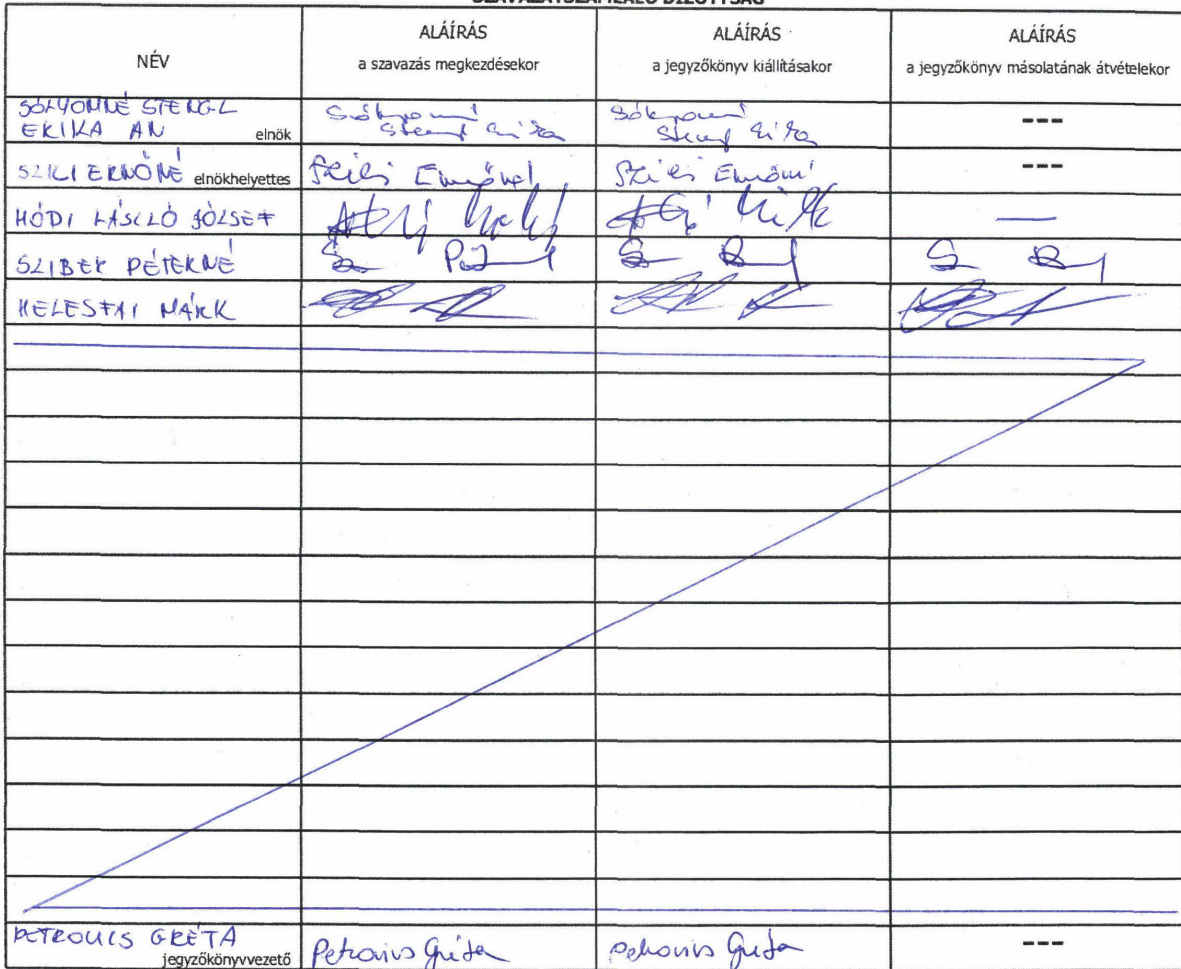 SZAVAZATSZÁMLÁLÓ BIZOTTSÁG
NÉV
ALÁÍRÁS
a szavazás megkezdésekor
ALÁÍRÁS
a jegyzőkönyv kiállításakor
ALÁÍRÁS
a jegyzőkönyv másolatának átvételekor
SÓLYOMNÉ STENGL
ERIKA AN elnök
Sólyomné
Stengl Erika
Sólyomné
Stengl Erika
---
SZILI ERNŐNÉ elnökhelyettes
Szili Ernőné
Szili Ernőné
---
HÓDI LÁSZLÓ JÓZSEF
—
SZIBER PÉTERNÉ
HELESFAI MÁRK
PETROVICS GRÉTA
jegyzőkönyvvezető
Petrovics Gréta
Petrovics Gréta
---